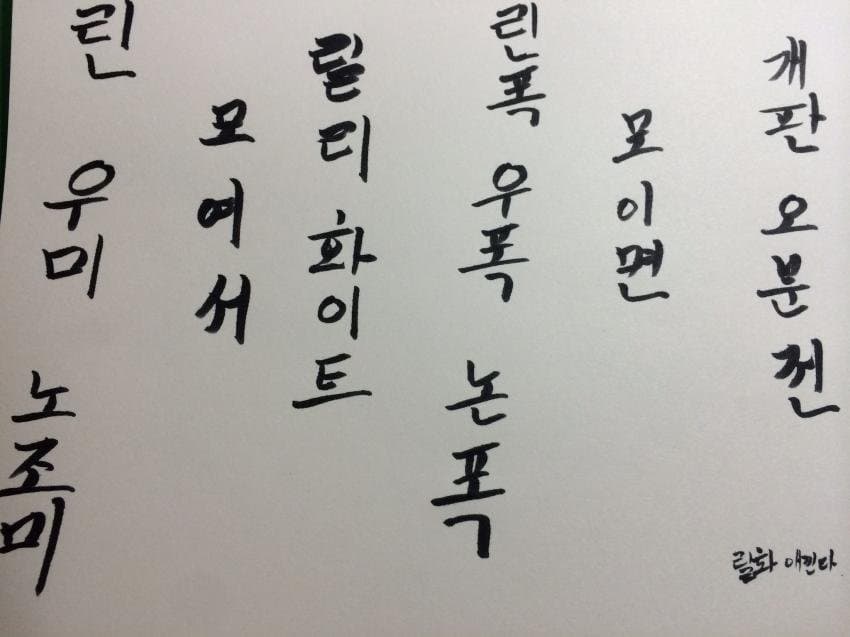 린 우미 노조미
모여서
릴리화이트
린폭 우폭 논폭
모이면
개판 오분전
릴화 애낀다